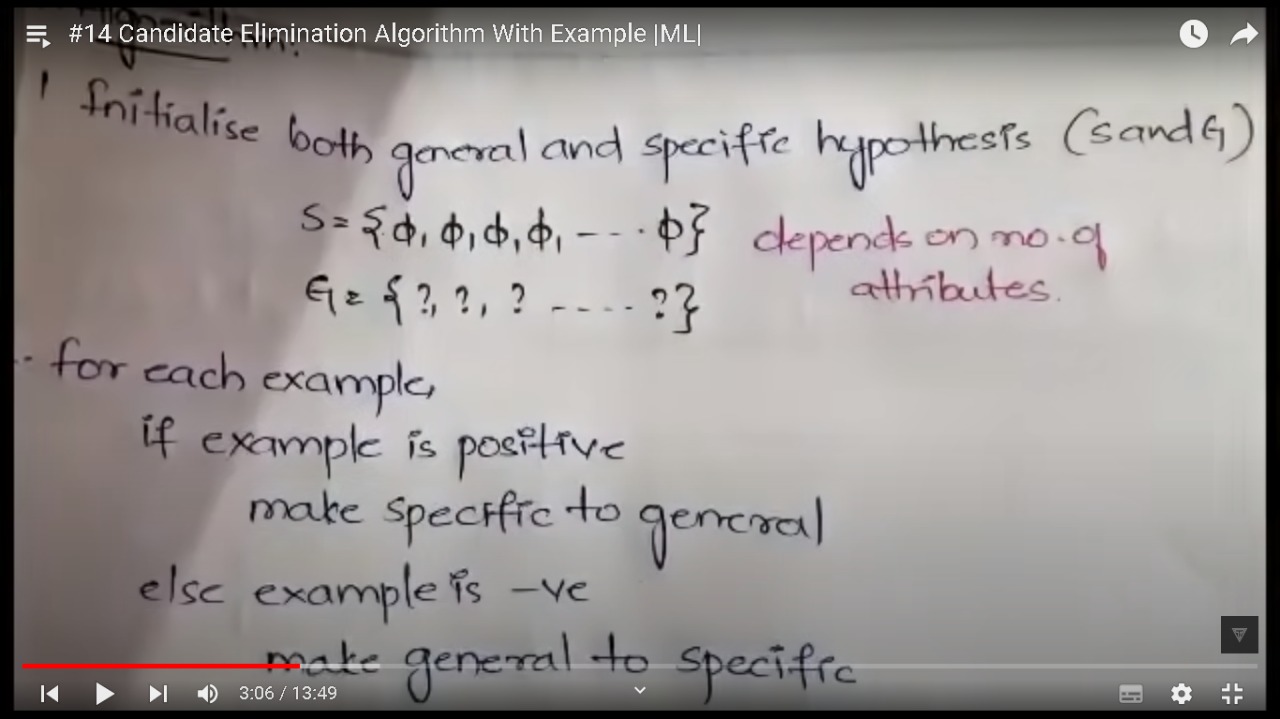 #14 Candidate Elimination Algorithm With Example |ML|
Initialise both general and specific hypothesis (S and G)
S = {ϕ, ϕ, ϕ, ϕ, --- . ϕ} depends on no. of
G = {?, ?, ? ----.. ?} attributes.
for each example,
if example is positive
make specific to general
else example is -ve
make general to specific
3:06 / 13:49